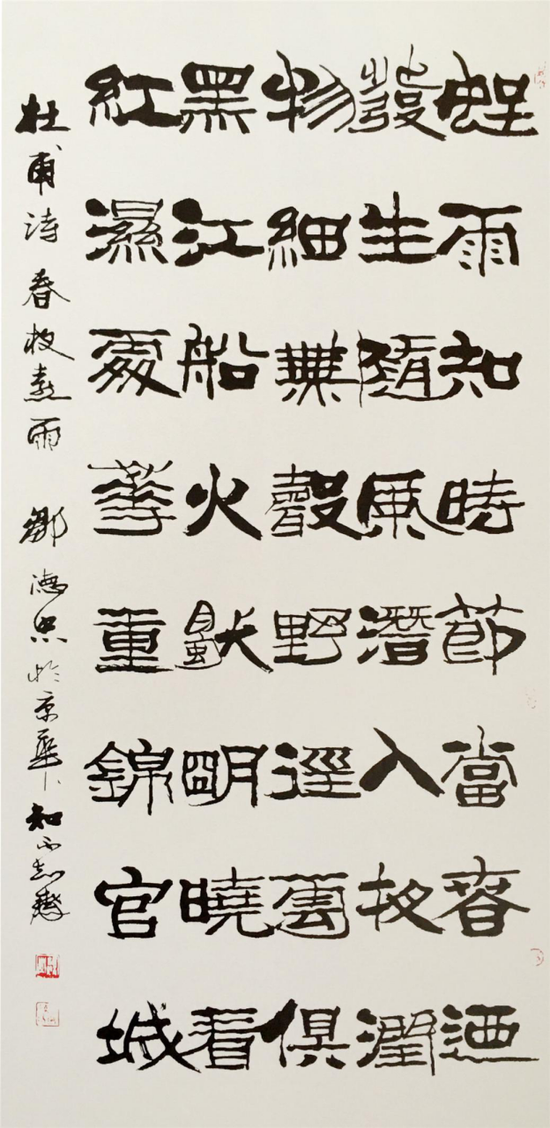 好雨知時節當春迺
發生隨風潛入夜潤
物細無聲野徑雲俱
黑江船火獨明曉看
紅濕處華重錦官城
杜甫诗 春夜喜雨 鄒德忠於京華